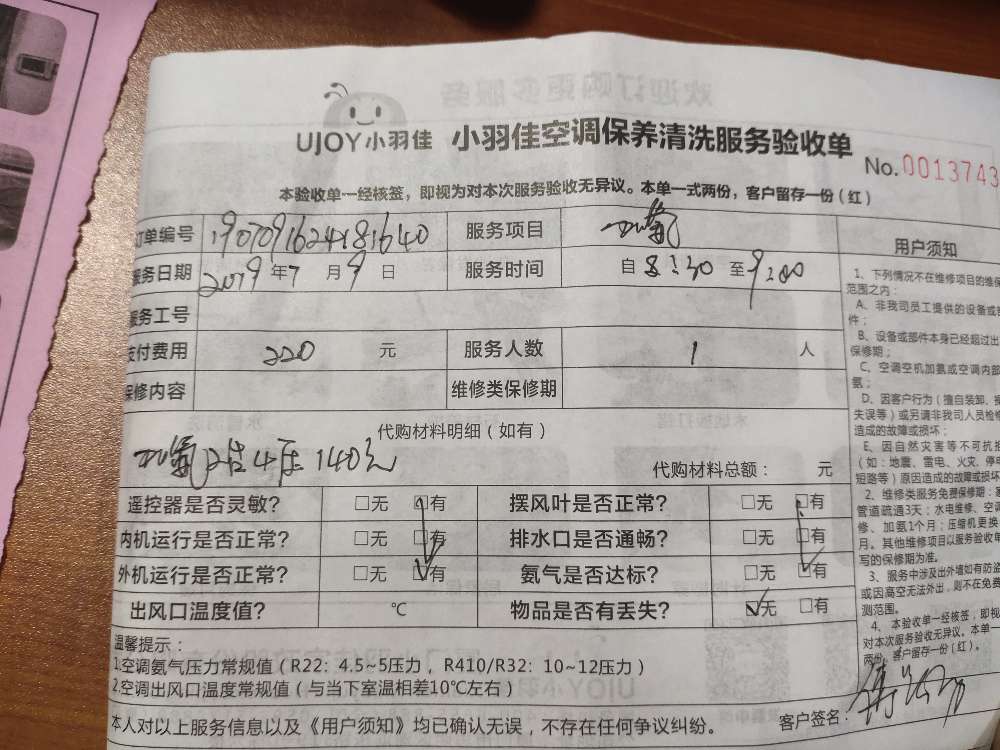 UJOY小羽佳 小羽佳空调保养清洗服务验收单
No.0013743
本验收单一经核签，即视为对本次服务验收无异议。本单一式两份，客户留存一份（红）
订单编号 190709162418 1640 服务项目 加氧
服务日期 2019年7月9日 服务时间 自8:30至9:00
服务工号
支付费用 220 元 服务人数 1 人
保修内容 维修类保修期
代购材料明细（如有）
加氧 4压 140元
代购材料总额： 元
遥控器是否灵敏？ □无 □有 摆风叶是否正常？ □无 □有
内机运行是否正常？ □无 □有 排水口是否通畅？ □无 □有
外机运行是否正常？ □无 □有 氨气是否达标？ □无 □有
出风口温度值？ ℃ 物品是否有丢失？ □无 □有
温馨提示：
1.空调氨气压力常规值（R22：4.5~5压力，R410/R32：10~12压力）
2.空调出风口温度常规值（与当下室温相差10℃左右）
本人对以上服务信息以及《用户须知》均已确认无误，不存在任何争议纠纷。
客户签名：
用户须知
1、下列情况不在维修项目的维保
范围之内：
A、非我司员工提供的设备或
件；
B、设备或部件本身已经超过出
保修期；
C、空调空机加氨或空调内部
氨；
D、因客户行为（擅自装卸、
失误等）或另请非我司人员检修
造成的故障或损坏；
E、因自然灾害等不可抗
（如：地震、雷电、火灾、停
短路等）原因造成的故障或损坏
2、维修类服务免费保修期：
管道疏通3天；水电维修、空调
修、加氨1个月；压缩机更换
月。其他维修项目以服务验收单
写的保修期为准。
3、服务中涉及出外墙如有防盗
或因高空无法外出，则不在免费
测范围。
4、本验收单一经核签，即视
对本次服务验收无异议。本单一
两份，客户留存一份（红）。